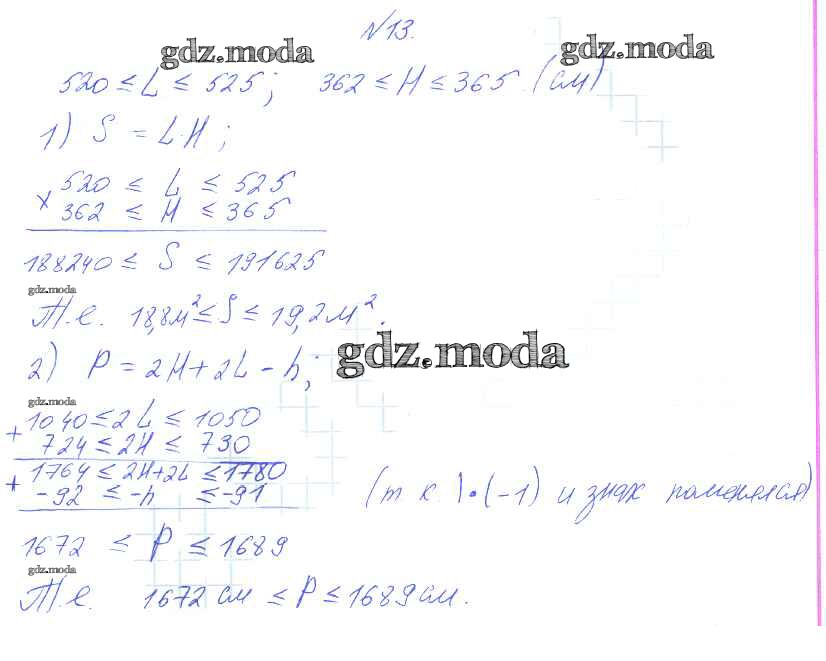 №13.
gdz.moda gdz.moda
520 ≤ L ≤ 525; 362 ≤ H ≤ 365 (см)
1) S = L·H;
520 ≤ L ≤ 525
× 362 ≤ H ≤ 365
188240 ≤ S ≤ 191625
gdz.moda
Т.е. 18,8м² ≤ S ≤ 19,2м².
2) P = 2H + 2L - h;
gdz.moda
gdz.moda
1040 ≤ 2L ≤ 1050
+ 724 ≤ 2H ≤ 730
1764 ≤ 2H+2L ≤ 1780
+ -92 ≤ -h ≤ -91 (т к. |·(-1) и знак поменялся)
1672 ≤ P ≤ 1689
gdz.moda
Т.е. 1672 см ≤ P ≤ 1689 см.